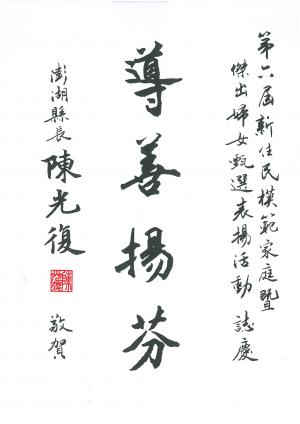 第六屆新住民模範家庭暨
傑出婦女甄選表揚活動 誌慶
導善揚芬
澎湖縣長 陳光復 敬賀